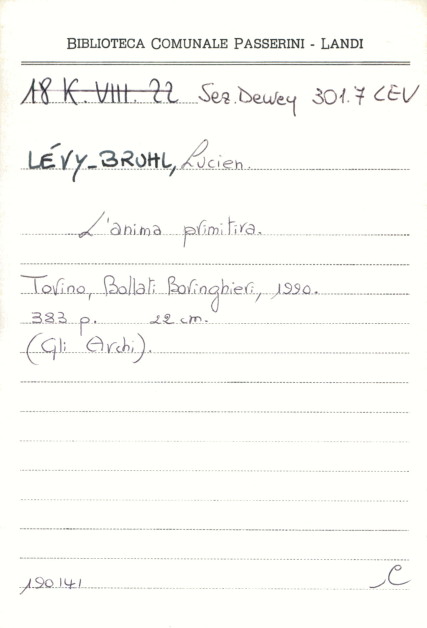 BIBLIOTECA COMUNALE PASSERINI - LANDI
18 K. VIII. 22 Sez. Dewey 301.7 LEV
LÉVY-BRUHL, Lucien.
L'anima primitiva.
Torino, Bollati Boringhieri, 1990.
383 p. 22 cm.
(Gli Archi).
190141 C